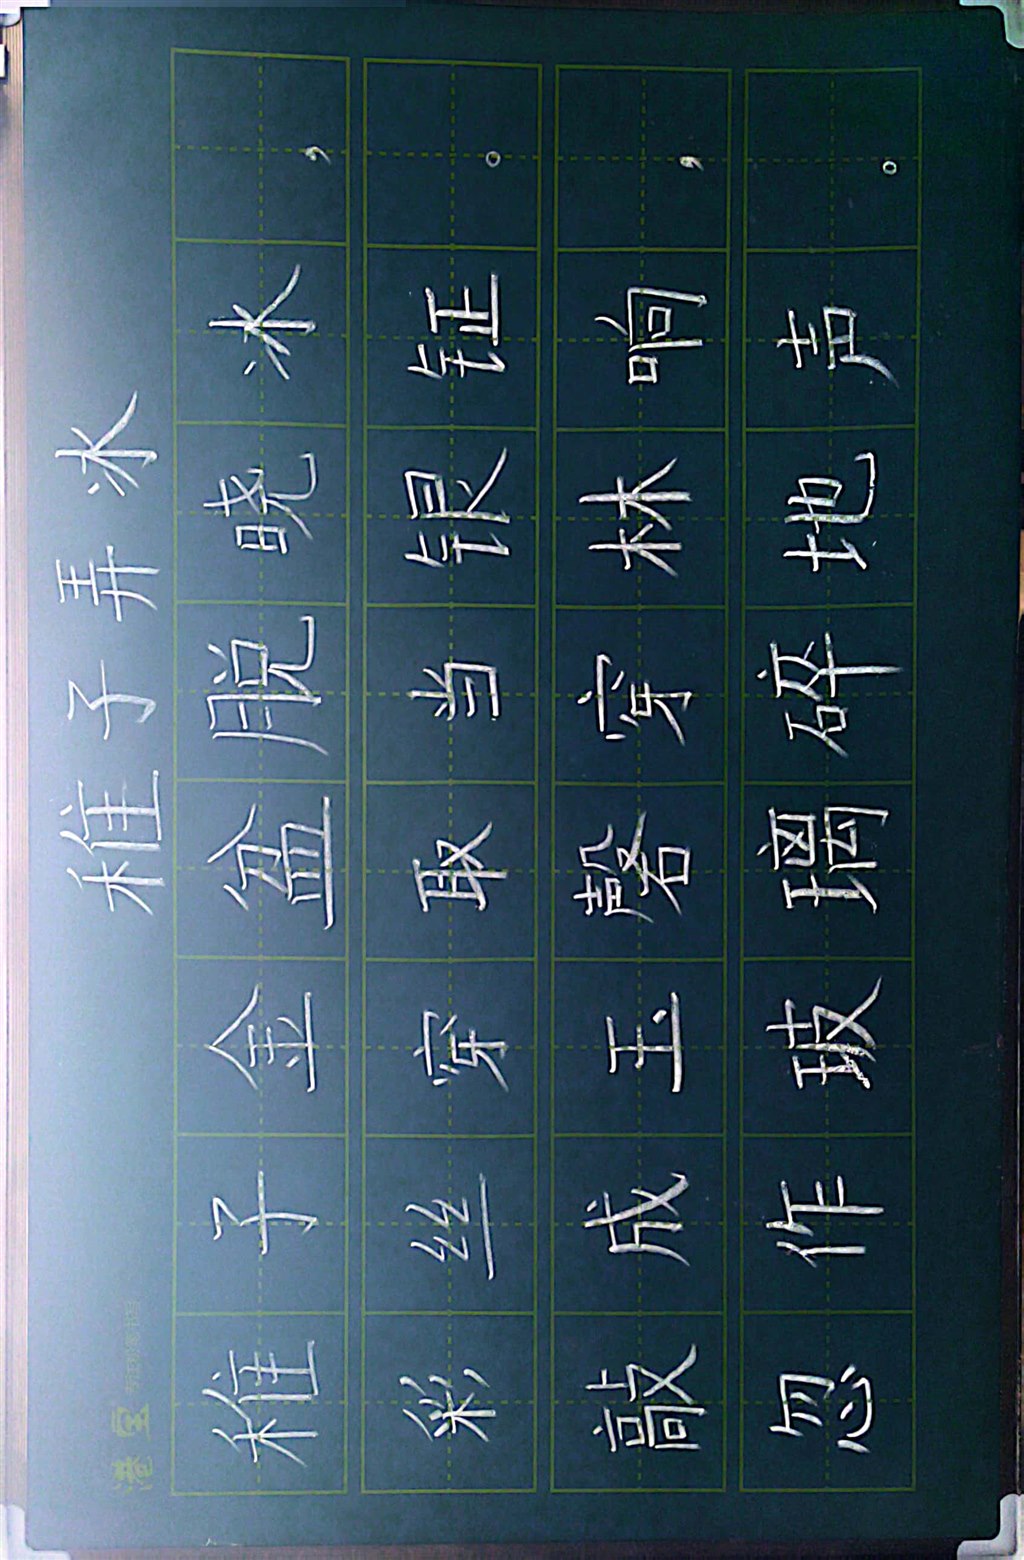 稚子弄冰
稚子金盆脱晓冰，
彩丝穿取当银钲。
敲成玉磬穿林响，
忽作玻璃碎地声。